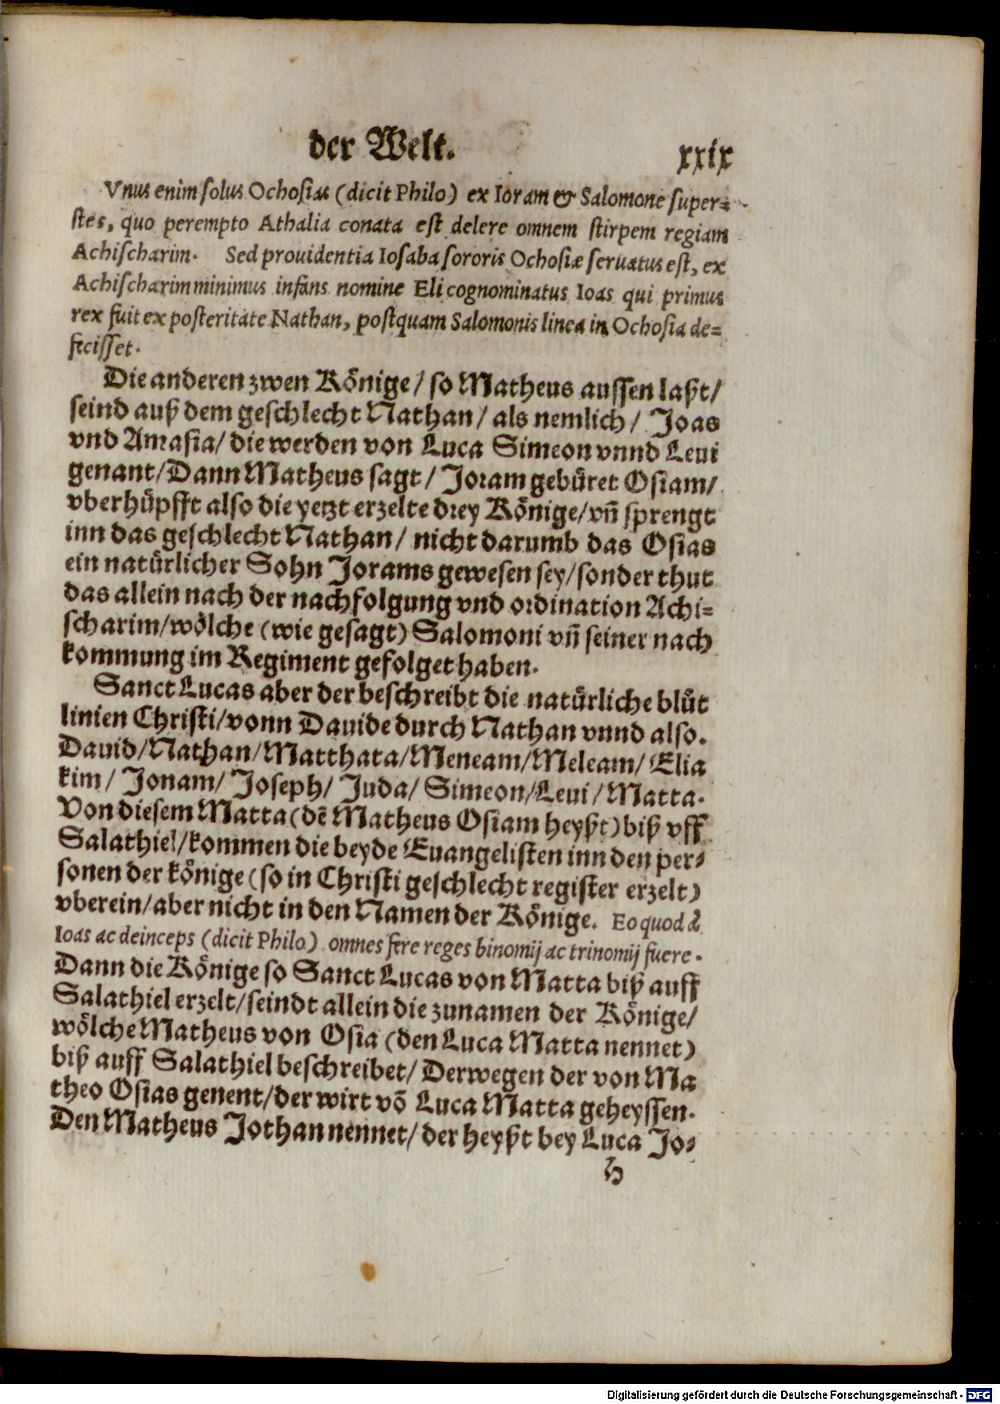 der Welt. xxix
Vnus enim solus Ochosias (dicit Philo) ex Ioram & Salomone super=
stes, quo perempto Athalia conata est delere omnem stirpem regiam
Achischarim. Sed prouidentia Iosaba sororis Ochosiæ seruatus est, ex
Achischarim minimus infans nomine Eli cognominatus Ioas qui primus
rex fuit ex posteritate Nathan, postquam Salomonis linea in Ochosia de=
fecisset.
Die anderen zwen Könige/ so Matheus aussen laßt/
seind auß dem geschlecht Nathan/ als nemlich/ Joas
vnd Amasia/ die werden von Luca Simeon vnnd Leui
genant/ Dann Matheus sagt/ Joram gebüret Osiam/
vberhüpfft also die yetzt erzelte drey Könige/ vñ sprengt
inn das geschlecht Nathan/ nicht darumb das Osias
ein natürlicher Sohn Jorams gewesen sey/ sonder thut
das allein nach der nachfolgung vnd ordination Achi=
scharim/ wölche (wie gesagt) Salomoni vñ seiner nach
kommung im Regiment gefolget haben.
Sanct Lucas aber der beschreibt die natürliche blůt
linien Christi/ vonn Dauide durch Nathan vnnd also.
Dauid/ Nathan/ Matthata/ Meneam/ Meleam/ Elia
kim/ Jonam/ Joseph/ Juda/ Simeon/ Leui/ Matta.
Von diesem Matta (dẽ Matheus Osiam heyßt) biß vff
Salathiel/ kommen die beyde Euangelisten inn den per=
sonen der könige (so in Christi geschlecht register erzelt)
vberein/ aber nicht in den Namen der Könige. Eo quod à
Ioas ac deinceps (dicit Philo) omnes fere reges binomij ac trinomij fuere.
Dann die Könige so Sanct Lucas von Matta biß auff
Salathiel erzelt/ seindt allein die zunamen der Könige/
wölche Matheus von Osia (den Luca Matta nennet)
biß auff Salathiel beschreibet/ Derwegen der von Ma
theo Osias genent/ der wirt võ Luca Matta geheyssen.
Den Matheus Jothan nennet/ der heyßt bey Luca Jo=
h
Digitalisierung gefördert durch die Deutsche Forschungsgemeinschaft - DFG